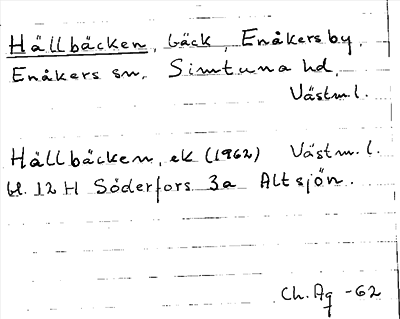 Hällbäcken, bäck, Enåkersby,
Enåkers sn. Simtuna hd.
Västm.l.
Hällbäcken, ek (1962) Västm.l.
bl. 12 H Söderfors 3a Altsjön.
Ch. Ag -62